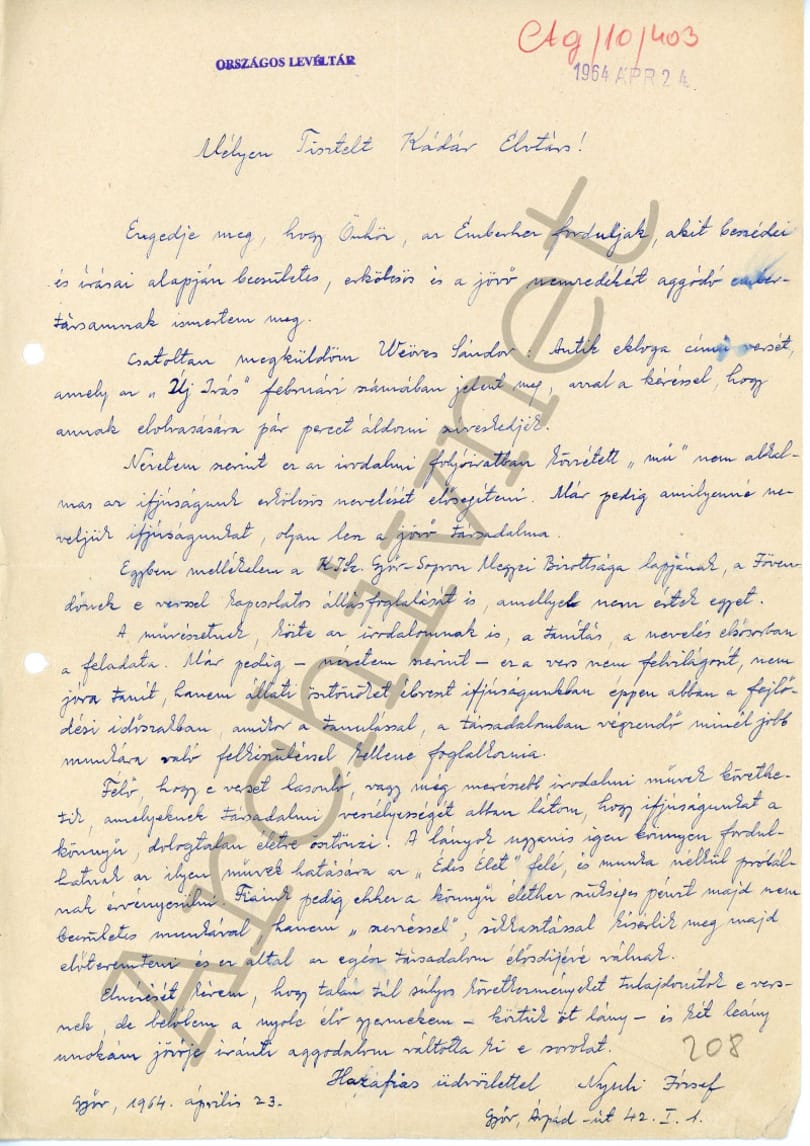 CAg/10/403
ORSZÁGOS LEVÉLTÁR
1964 ÁPR 24.
Mélyen Tisztelt Kádár Elvtárs!
Engedje meg, hogy Önhöz, az Emberhez forduljak, akit beszédei
és írásai alapján becsületes, erkölcsös és a jövő nemzedékért aggódó ember-
társamnak ismertem meg.
Csatoltan megküldöm Weöres Sándor: Antik ekloga című versét,
amely az „Új Írás" februári számában jelent meg, azzal a kéréssel, hogy
annak elolvasására pár percet áldozni szíveskedjék.
Nézetem szerint ez az irodalmi folyóiratban közzétett „mű" nem alkal-
mas az ifjúságunk erkölcsös nevelését elősegíteni. Már pedig amilyenné ne-
veljük ifjúságunkat, olyan lesz a jövő társadalma.
Egyben mellékelem a KISz. Győr-Sopron Megyei Bizottsága lapjának, a Jöven-
dőnek e verssel kapcsolatos állásfoglalását is, amellyel nem értek egyet.
A művészetnek, közte az irodalomnak is, a tanítás, a nevelés elsősorban
a feladata. Már pedig – nézetem szerint – ez a vers nem felvilágosít, nem
jóra tanít, hanem állati ösztönöket ébreszt ifjúságunkban éppen abban a fejlő-
dési időszakban, amikor a tanulással, a társadalomban végzendő minél jobb
munkára való felkészüléssel kellene foglalkoznia.
Félő, hogy e verset hasonló, vagy még merészebb irodalmi művek követhe-
tik, amelyeknek társadalmi veszélyességét abban látom, hogy ifjúságunkat a
könnyű, dologtalan életre ösztönzi. A lányok ugyanis igen könnyen fordul-
hatnak az ilyen művek hatására az „Édes Élet" felé, és munka nélkül próbál-
nak érvényesülni. Fiaink pedig ehhez a könnyű élethez szükséges pénzt majd nem
becsületes munkával, hanem „szerzéssel", sikkasztással kísérlik meg majd
előteremteni és ez által az egész társadalom élősdijévé válnak.
Elnézését kérem, hogy talán túl súlyos következményeket tulajdonítok e vers-
nek, de belőlem a nyolc élő gyermekem – köztük öt lány – és két leány
unokám jövője iránti aggodalom váltotta ki e sorokat.
208
Hazafias üdvözlettel Nyuli József
Győr, 1964. április 23.
Győr, Árpád-út 42. I. 1.
Archivnet